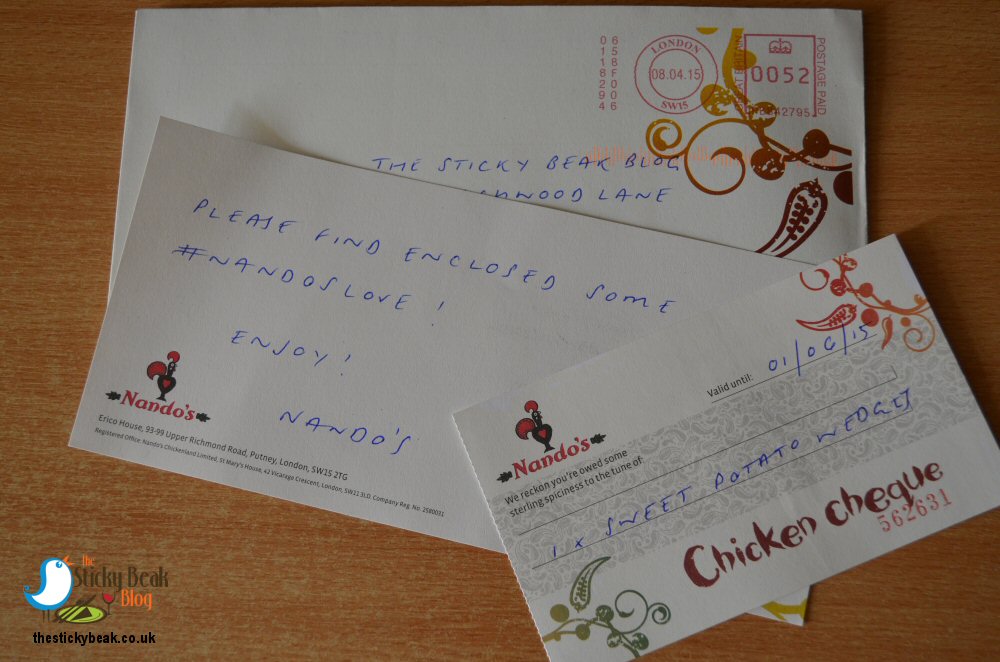 06
15
18
8F
20
90
46
LONDON
08.04.15
SW15
0052
POSTAGE PAID
THE STICKY BEAK BLOG
WOOD LANE
PLEASE FIND ENCLOSED SOME
#NANDOSLOVE!
ENJOY!
NANDO'S
Nando's
Erico House, 93-99 Upper Richmond Road, Putney, London, SW15 2TG
Registered Office: Nando's Chickenland Limited, St Mary's House, 42 Vicarage Crescent, London, SW11 3LD. Company Reg. No 2580031
Valid until: 01/06/15
Nando's
We reckon you're owed some
sterling spiciness to the tune of:
1 x SWEET POTATO WEDGES
Chicken Cheque
562631
The
Sticky Beak
Blog
thestickybeak.co.uk